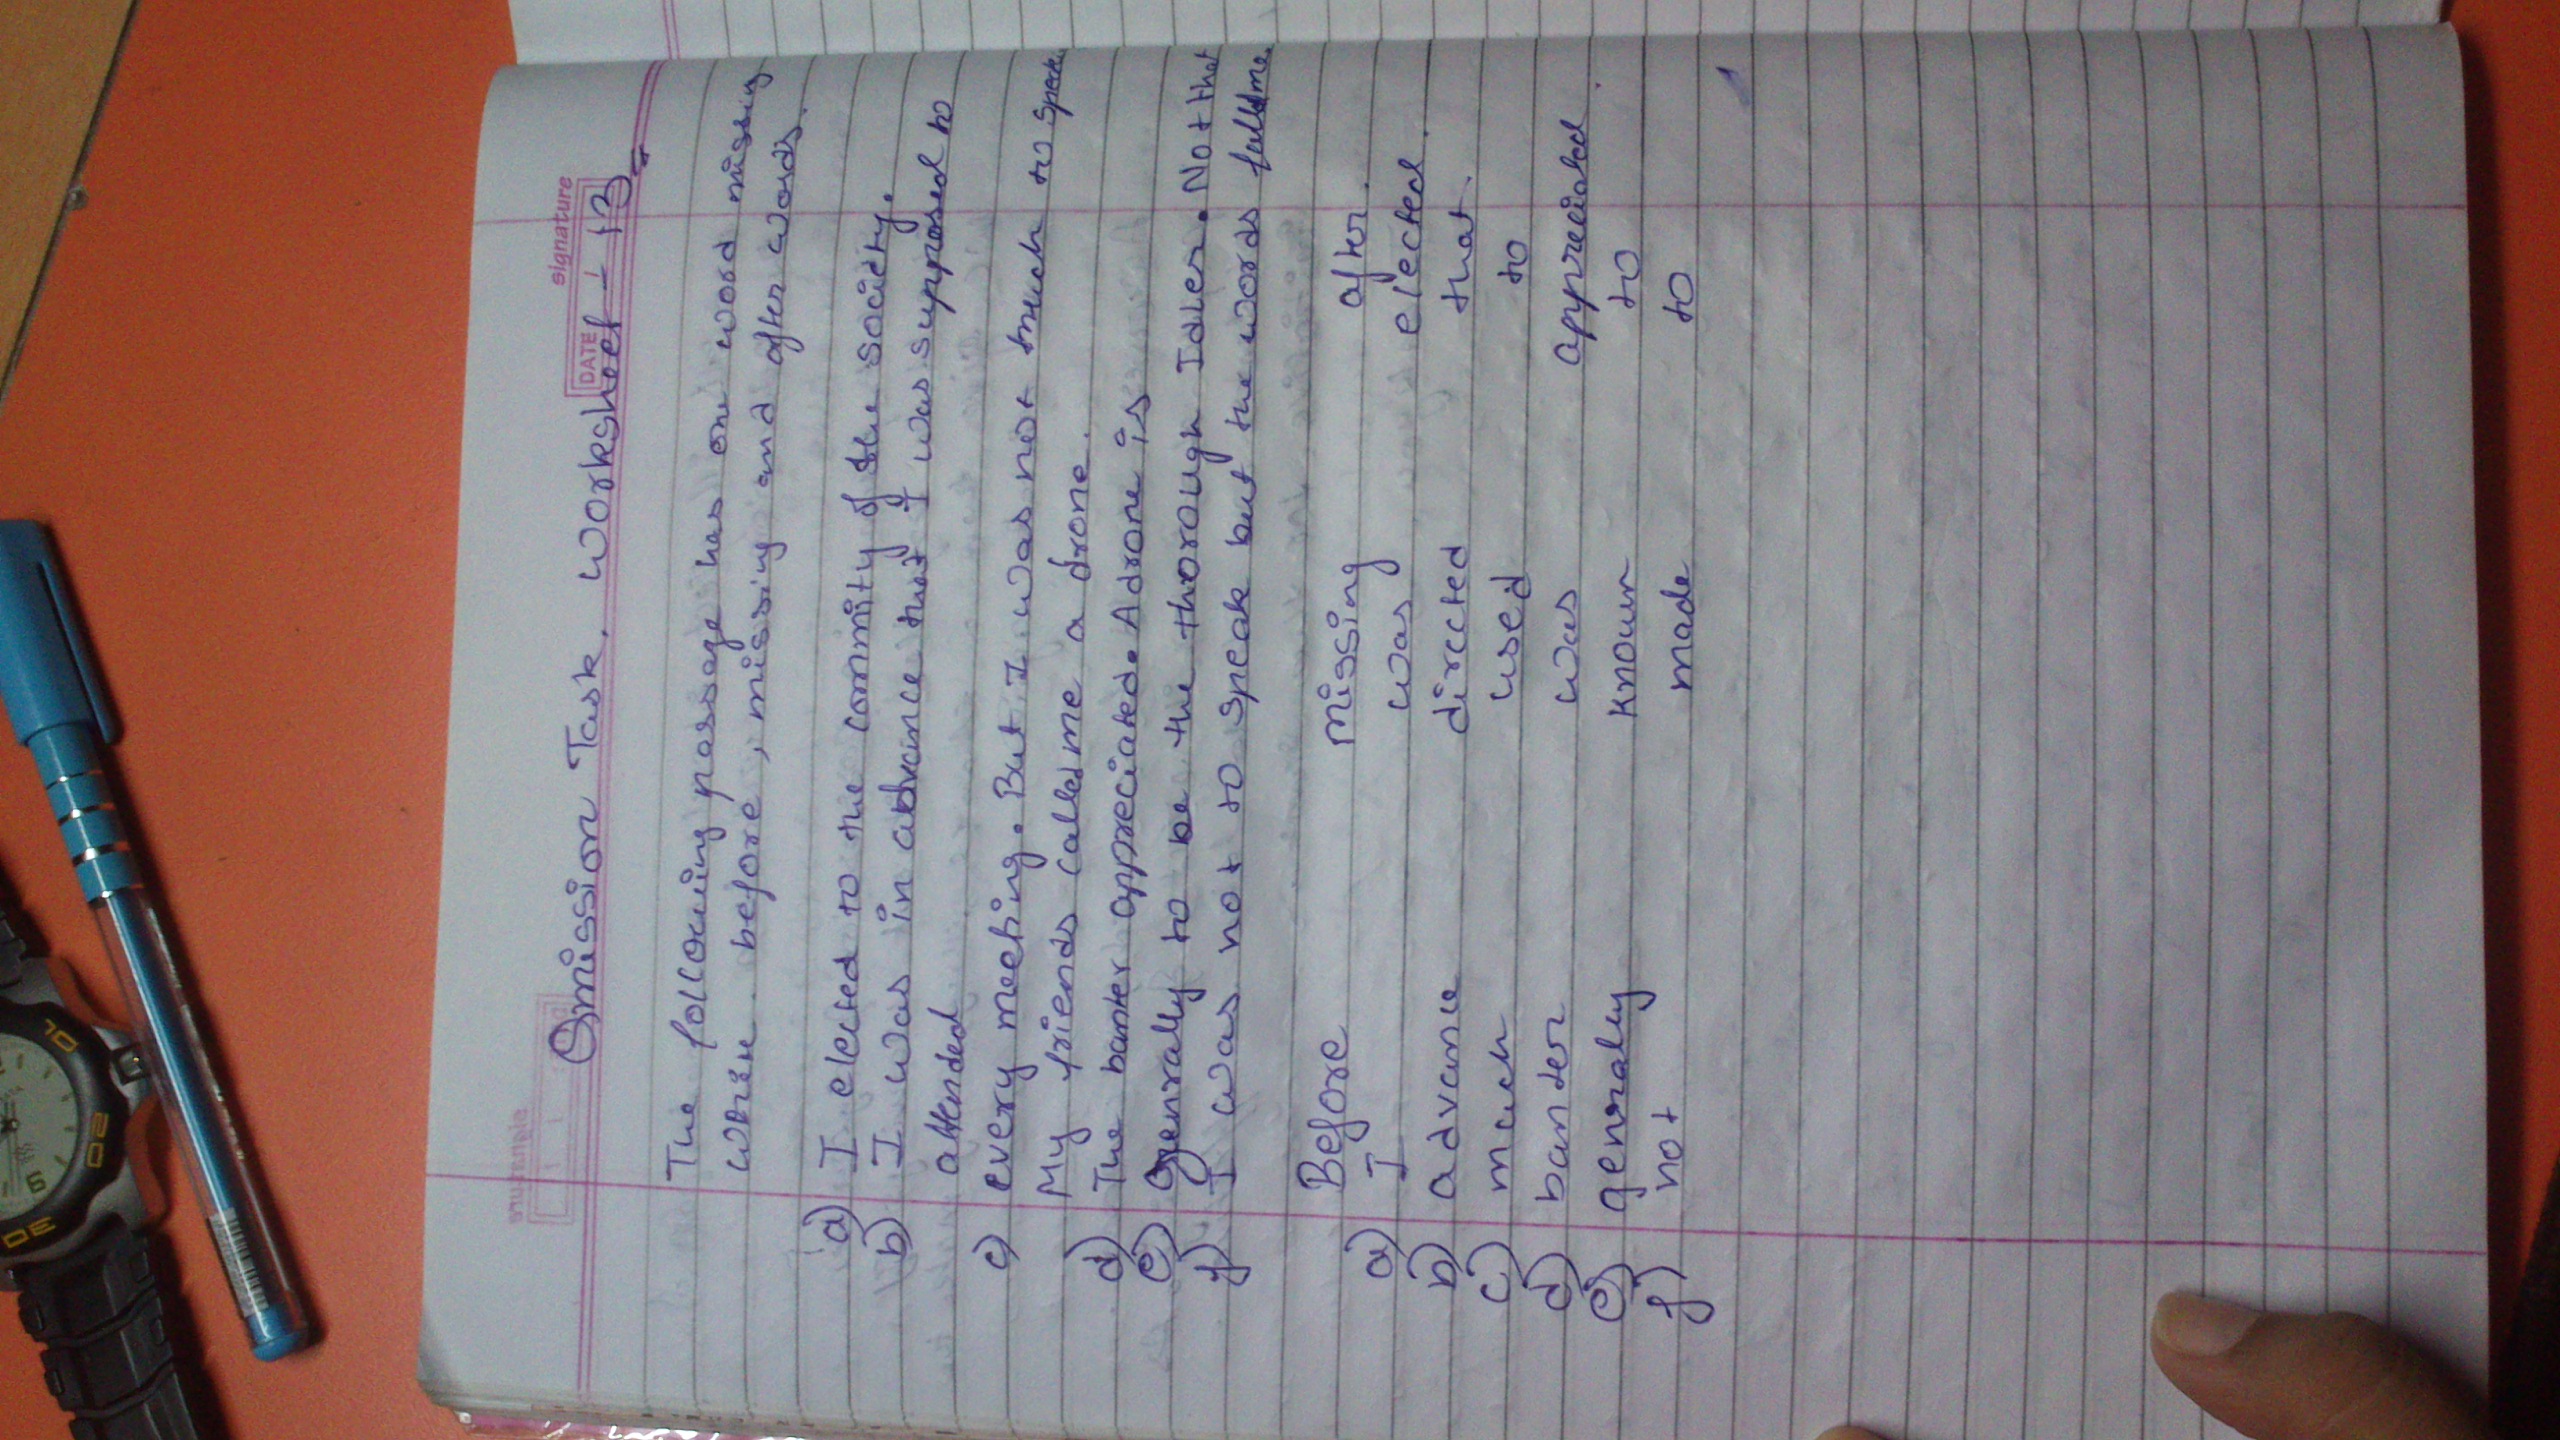 signature
DATE
Omission Task. Worksheet - 13
The following passage has one word missing
Write before, missing and after words.
a) I elected to the commity of the society.
b) I was in advance that I was supposed to
attended
c) every meeting. But I was not much to speak
My friends called me a drone.
d) The banter appreciated. A drone is
e) genrally to be the thorough Idler. Not that
f) I was not to speak but the words faild me.
Before missing after.
a) I was elected.
b) advance directed that.
c) much used to
d) banter was appreciated
e) genrally known to
f) not made to